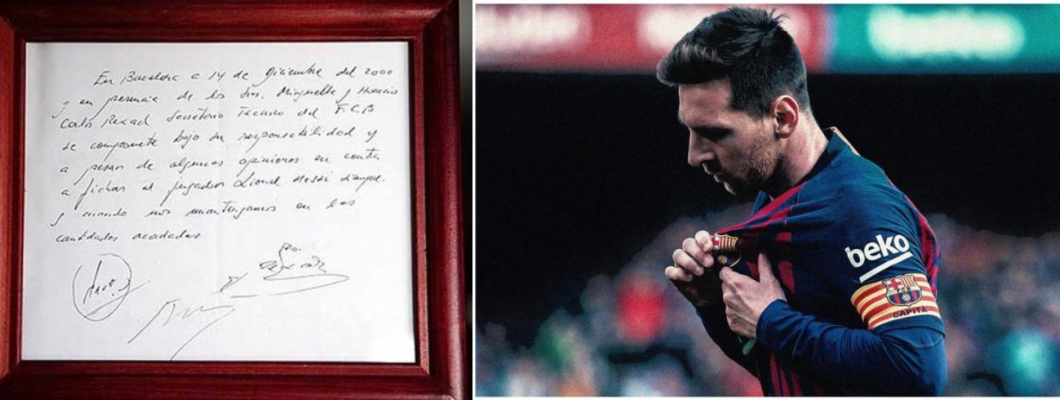 En Barcelona a 14 de Diciembre del 2000
y en presencia de los Sres. Minguella y Horacio
Carlos Rexach Secretario Técnico del F.C.B
se compromete bajo su responsabilidad y
a pesar de algunas opiniones en contra
a fichar al jugador Lionel Messi siempre
y cuando nos mantengamos en las
cantidades acordadas
beko
CAPITÀ